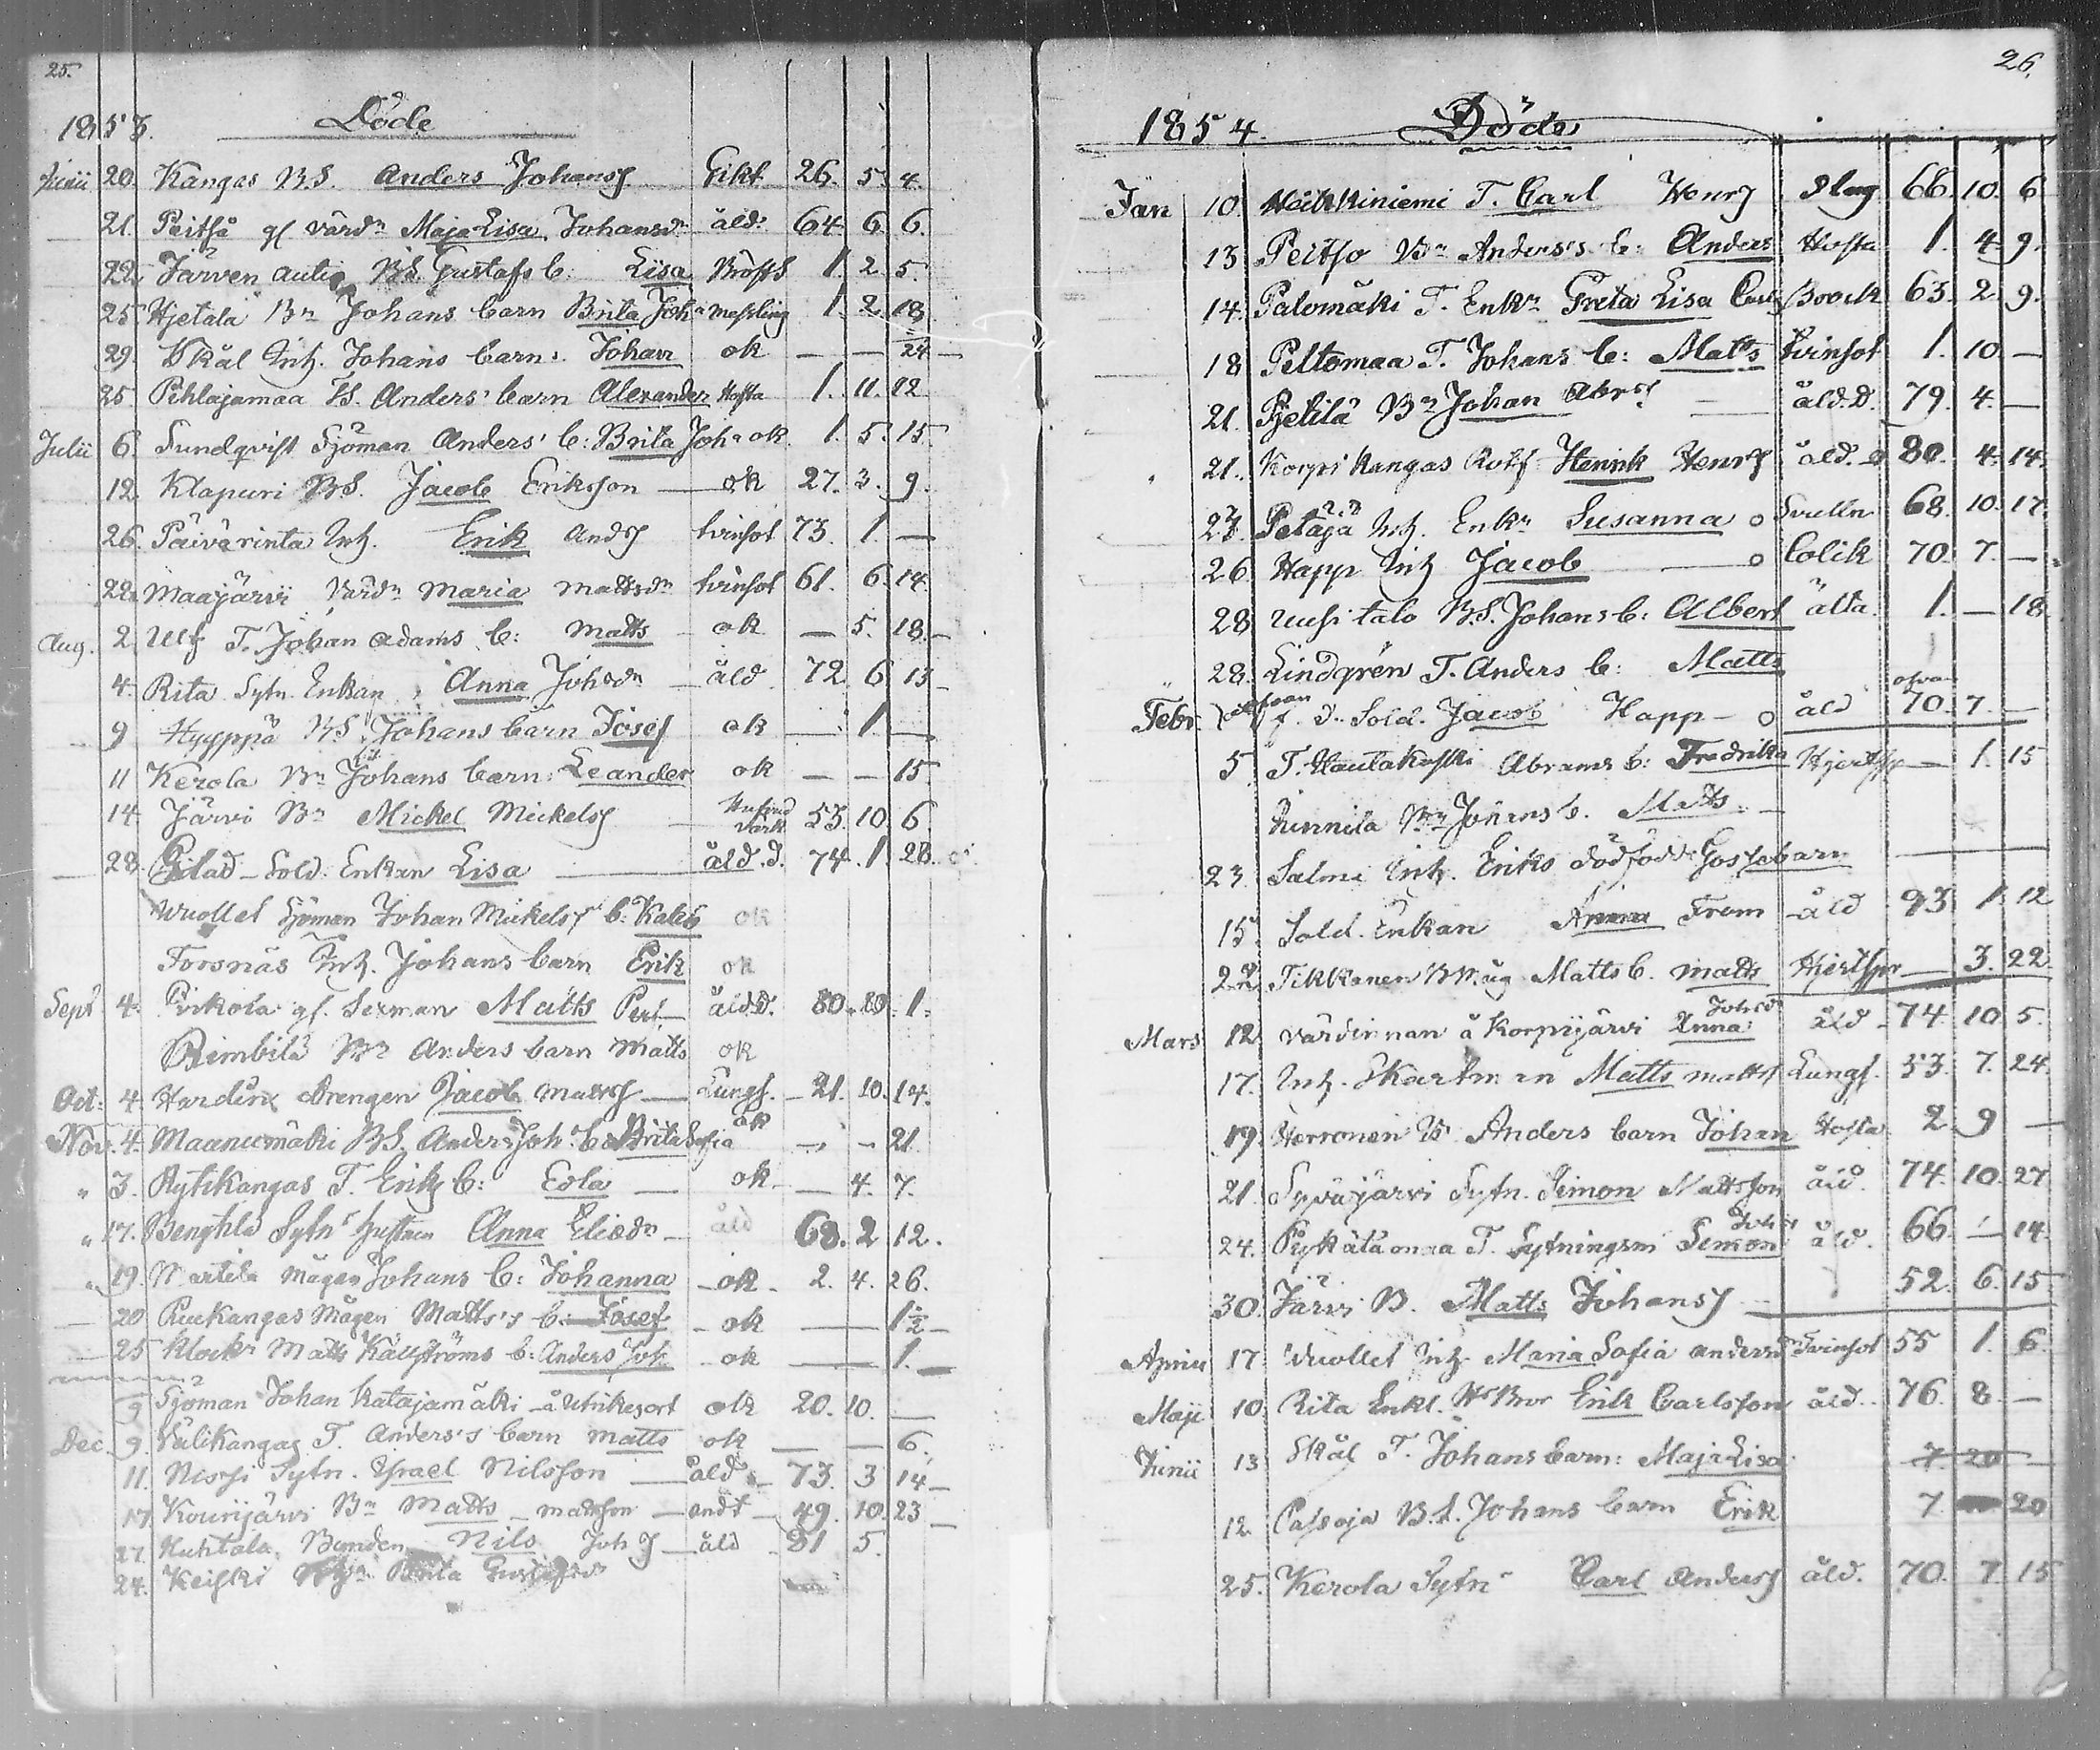 25.
1853. Döde
Junii 20. Kangas B.S. Anders Johansſ Gikt 26. 5. 4.
21. Peitſå gl värdn Maja Lisa Johansdn åld. 64. 6. 6.
22. Järven autio B.S. Gustafs b: Lisa Bröſts 1. 2. 5.
25. Hjetala Bn Johans barn Brita Joha Meſsling 1. 2. 18
29. Skäl Inh. Johans barn: Johan ok — — 24 —
25 Pihlajamaa B.S. Anders' barn Alexander Hoſta 1. 11. 12
Julii 6. Sundqviſt Sjöman Anders' b: Brita Joha ok. 1. 5. 15.
12. Klapuri B.S. Jacob Erikſson — ok 27. 3. 9.
26. Päivärinta Inh. Erik Andſ tvinſot 73. 1. —
22. Maajärvi Värdn Maria Mattsdn tvinſot 61. 6. 14.
Aug. 2. Ulf T. Johan Adams b: Matts ok — 5. 18. —
4. Rita Sytn. Enkan Anna Johsdn — åld 72. 6. 13 —
9 Hyyppä B.S. Johans barn Josef ok — 1. —
11 Kerola Bn Johans barn: Leander ok — — 15.
14 Järvi Bn Mickel Mickelsſ Hufvud värk 53. 10. 6.
28. Gilad Sold. Enkan Lisa — åld.d. 74. 1. 28.
Wuollet Sjöman Johan Mickelsſ b: Kalis ok
Forsnäs Inh. Johans barn Erik ok
Sept 4. Pirkola gl. Sexman Matts Pert — åld.d. 80. 10. 1.
Rimbilä Bn Anders barn Matts ok
Oct: 4. Hardink Drengen Jacob Mattsſ — Lungſ. — 21. 10. 14.
Nov. 4. Maanumäki B.S. Anders Joh. b. Brita Sofia ok — — 21.
" 3. Rytikangas T. Eriks b: Edla — ok. — 4. 7.
" 17. Bengtila Sytn hustrun Anna Eliædn — åld 68. 2 12.
" 19. Martila Mågen Johans b: Johanna — ok — 2. 4. 26.
20 Ruukangas Mågen Matts's b: Josef — ok — 1½ —
25 Klock. Matts Källſtröms b: Anders Joh ok — 1. —
9 Sjöman Johan Katajamäki å Utrikesort ok 20. 10. —
Dec. 9. Välikangas T. Anders's barn Matts ok — — 6.
11. Nisſi Sytn. Iſrael Nilsſon — åld — 73. 3 14 —
17 Kounijärvi Bn Matts Mattsſon — andt — 49. 10. 23 —
27. Huhtala Bonden Nils Joh ſ — åld — 81 5.
24. Keiſki Brita Gustafsd
26.
1854. Döde
Jan 10. Höikkiniemi T. Carl Henrſ Slag 66. 10. 6
13 Peitſo Bn Anders's b: Anders Hoſta 1. 4 9.
14. Palomäki T. Enkn Greta Lisa Carls Brock 63. 2 9.
18 Peltomaa T. Johans b: Matts tvinſot 1. 10 —
21. Pjetilä Bn Johan Abrsſ — åld.d. 79. 4. —
21. Korpikangas Rotſ Henrik Henrſ åld.d 80. 4. 14.
23. Petäjä Inh. Enkn Susanna o Svulln 68. 10. 17.
26 Happ Inh Jacob — o Colik 70. 7. —
28 Uuſitalo B.S. Johans b: Albert älta. 1. — 18
28. Lindgrén T. Anders b: Matts
Febr. f. d. Sold. Jacob Happ — o åld 70. 7. —
5 T. Hautakoſki Abrams b: Fredrika Hjertſpr — 1. 15
Junnila Bn Johans b. Matts. —
23. Salmi Inh. Eriks dödfödde Gosſebarn —
15. Sold. Enkan Anna From — åld 93 1. 12
22 Tikkanen B Måg Matts b. Matts Hjertſpr — 3. 22.
Mars 12 värdinnan å Korpijärvi Anna Johsd åld — 74. 10 5.
17. Inh. Skartman Matts Mattsſ Lungſ. 53. 7. 24.
19. Herronen B Anders barn Johan Hoſta 2 9 —
21. Syväjärvi Sytn. Simon Mattsſon åld. 74. 10. 27
24. Pyhätäomaa T. Sytningsm Simon Johsſ åld. 66. — 14.
30. Järvi B. Matts Johansſ — 52. 6. 15
Aprill 17. Wuollet Inh Maria Sofia Andersdn Tvinſot 55 1. 6.
Maji 10. Rita Enkl. Hr Bror Erik Carlsſon åld. 76. 8. —
Junii 13 Skäl T. Johans barn: Maja Lisa 7 20 —
12. Paſsoja B.S. Johans barn Erik 7. 20
25. Kerola Sytn Carl Andersſ åld. 70. 7. 15